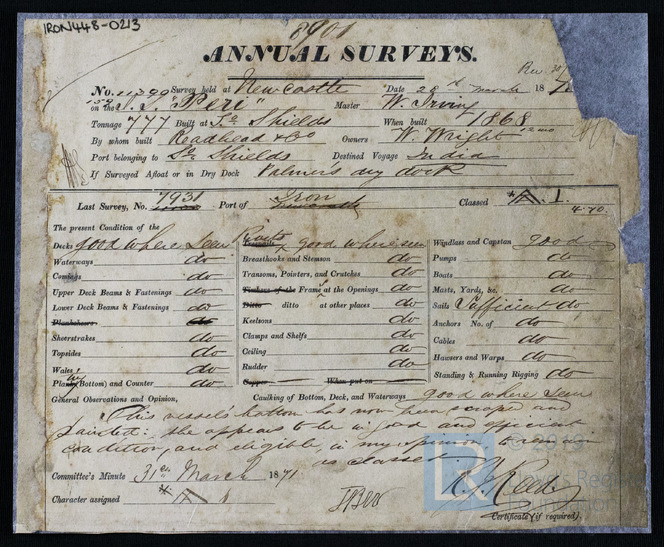 IRON448-0213
8901
ANNUAL SURVEYS.
Rec 30/
No. 11799 Survey held at Newcastle Date 28th March 187
on the S.S. "Peri" Master W. Irving
Tonnage 777 Built at So Shields When built 1868
By whom built Readhead & Co Owners W. Wright 12 mo
Port belonging to So Shields Destined Voyage India
If Surveyed Afloat or in Dry Dock Palmers dry dock
7931 Iron
Last Survey, No. Port of Newcastle Classed *A. 1.
4.70.
The present Condition of the
Decks good where seen Rivets good where seen Windlass and Capstan good
Waterways do Breasthooks and Stemson do Pumps do
Comings do Transoms, Pointers, and Crutches do Boats do
Upper Deck Beams & Fastenings do Timbers of the Frame at the Openings do Masts, Yards, &c. do
Lower Deck Beams & Fastenings do Ditto ditto at other places do Sails Sufficient do
Planksheers do Keelsons do Anchors No. of do
Sheerstrakes do Clamps and Shelfs do Cables do
Topsides do Ceiling do Hawsers and Warps do
Wales do Rudder do Standing & Running Rigging do
Plank (Bottom) and Counter do Copper When put on
General Observations and Opinion, Caulking of Bottom, Deck, and Waterways good where seen
This vessels bottom has now been scraped and
painted: she appears to be in good and efficient
condition, and eligible, in my opinion to remain
as classed.
Committee's Minute 31st March 1871
Character assigned *A 1
Certificate (if required).